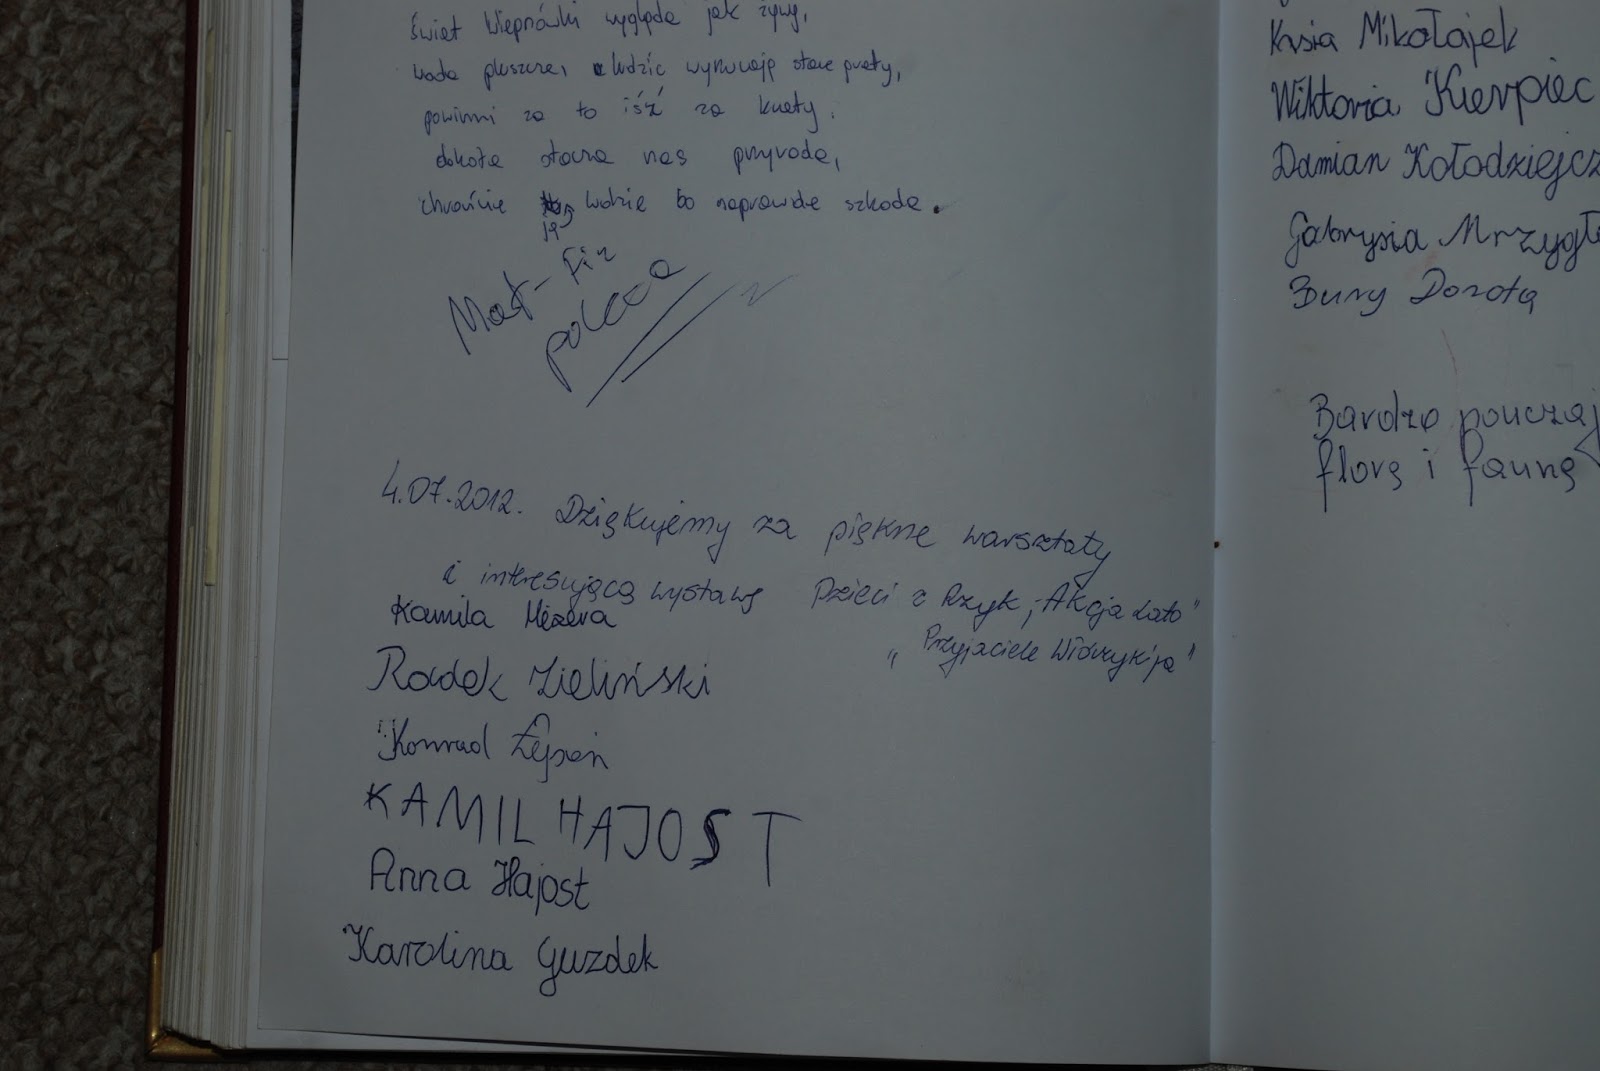 świat Wieprzówki wygląda jak żywy,
woda pluszcze, ludzie wyrzucają stare pręty,
powinni za to iść za kraty.
dokoła otacza nas przyroda,
chrońcie ją ludzie bo naprawdę szkoda.
Mat-Fiz
poleca
4.07.2012. Dziękujemy za piękne warsztaty
i interesującą wystawę Dzieci z Ryzyk, „Akcja Lato"
„Przyjaciele Włóczykija"
Kamila
Radek Zieliński
Konrad
KAMIL HAJOST
Anna Hajost
Karolina Guzdek
Kasia Mikołajek
Wiktoria Kierpiec
Damian Kołodziejcz
Gabrysia Mrzygł
Bury Dorota
Bardzo pouczaj
florą i fauną